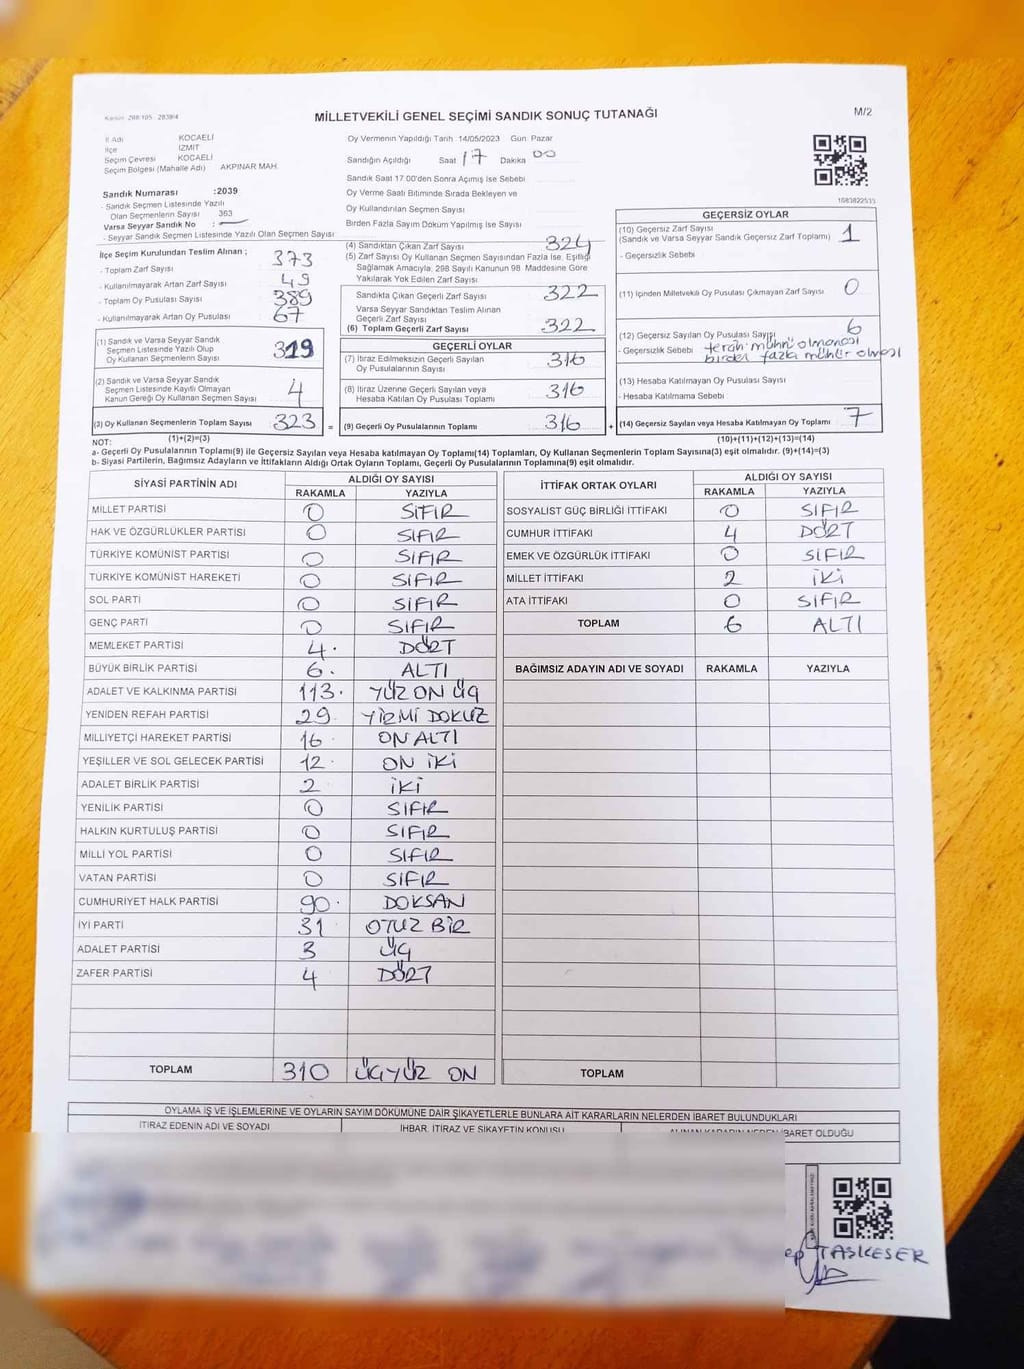 Kanun: 298/105 - 2839/4
MİLLETVEKİLİ GENEL SEÇİMİ SANDIK SONUÇ TUTANAĞI
M/2
İl Adı KOCAELİ
İlçe İZMİT
Seçim Çevresi KOCAELİ
Seçim Bölgesi (Mahalle Adı) AKPINAR MAH.
Sandık Numarası :2039
- Sandık Seçmen Listesinde Yazılı
Olan Seçmenlerin Sayısı 363
Varsa Seyyar Sandık No :
- Seyyar Sandık Seçmen Listesinde Yazılı Olan Seçmen Sayısı
Oy Vermenin Yapıldığı Tarih 14/05/2023 Gün Pazar
Sandığın Açıldığı Saat 17 Dakika 00
Sandık Saat 17.00'den Sonra Açımış İse Sebebi
Oy Verme Saati Bitiminde Sırada Bekleyen ve
Oy Kullandırılan Seçmen Sayısı
Birden Fazla Sayım Döküm Yapılmış İse Sayısı
1683822533
İlçe Seçim Kurulundan Teslim Alınan ;
- Toplam Zarf Sayısı 373
- Kullanılmayarak Artan Zarf Sayısı 49
- Toplam Oy Pusulası Sayısı 389
- Kullanılmayarak Artan Oy Pusulası 67
(1) Sandık ve Varsa Seyyar Sandık
Seçmen Listesinde Yazılı Olup
Oy Kullanan Seçmenlerin Sayısı 319
(2) Sandık ve Varsa Seyyar Sandık
Seçmen Listesinde Kayıtlı Olmayan
Kanun Gereği Oy Kullanan Seçmen Sayısı 4
(3) Oy Kullanan Seçmenlerin Toplam Sayısı 323 =
(4) Sandıktan Çıkan Zarf Sayısı 324
(5) Zarf Sayısı Oy Kullanan Seçmen Sayısından Fazla İse, Eşitliği
Sağlamak Amacıyla; 298 Sayılı Kanunun 98. Maddesine Göre
Yakılarak Yok Edilen Zarf Sayısı
Sandıkta Çıkan Geçerli Zarf Sayısı 322
Varsa Seyyar Sandıktan Teslim Alınan
Geçerli Zarf Sayısı
(6) Toplam Geçerli Zarf Sayısı 322
GEÇERLİ OYLAR
(7) İtiraz Edilmeksizin Geçerli Sayılan
Oy Pusulalarının Sayısı 316
(8) İtiraz Üzerine Geçerli Sayılan veya
Hesaba Katılan Oy Pusulası Toplamı 316
(9) Geçerli Oy Pusulalarının Toplamı 316 +
GEÇERSİZ OYLAR
(10) Geçersiz Zarf Sayısı 1
(Sandık ve Varsa Seyyar Sandık Geçersiz Zarf Toplamı)
- Geçersizlik Sebebi
(11) İçinden Milletvekili Oy Pusulası Çıkmayan Zarf Sayısı 0
(12) Geçersiz Sayılan Oy Pusulası Sayısı 6
- Geçersizlik Sebebi tercih mührü olmaması
birden fazla mühür olması
(13) Hesaba Katılmayan Oy Pusulası Sayısı
- Hesaba Katılmama Sebebi
(14) Geçersiz Sayılan veya Hesaba Katılmayan Oy Toplamı 7
NOT: (1)+(2)=(3) (10)+(11)+(12)+(13)=(14)
a- Geçerli Oy Pusulalarının Toplamı(9) ile Geçersiz Sayılan veya Hesaba katılmayan Oy Toplamı(14) Toplamları, Oy Kullanan Seçmenlerin Toplam Sayısına(3) eşit olmalıdır. (9)+(14)=(3)
b- Siyasi Partilerin, Bağımsız Adayların ve İttifakların Aldığı Ortak Oyların Toplamı, Geçerli Oy Pusulalarının Toplamına(9) eşit olmalıdır.
SİYASİ PARTİNİN ADI ALDIĞI OY SAYISI
RAKAMLA YAZIYLA
MİLLET PARTİSİ 0 SIFIR
HAK VE ÖZGÜRLÜKLER PARTİSİ 0 SIFIR
TÜRKİYE KOMÜNİST PARTİSİ 0 SIFIR
TÜRKİYE KOMÜNİST HAREKETİ 0 SIFIR
SOL PARTİ 0 SIFIR
GENÇ PARTİ 0 SIFIR
MEMLEKET PARTİSİ 4. DÖRT
BÜYÜK BİRLİK PARTİSİ 6. ALTI
ADALET VE KALKINMA PARTİSİ 113. YÜZ ON ÜÇ
YENİDEN REFAH PARTİSİ 29. YİRMİ DOKUZ
MİLLİYETÇİ HAREKET PARTİSİ 16. ON ALTI
YEŞİLLER VE SOL GELECEK PARTİSİ 12. ON İKİ
ADALET BİRLİK PARTİSİ 2 İKİ
YENİLİK PARTİSİ 0 SIFIR
HALKIN KURTULUŞ PARTİSİ 0 SIFIR
MİLLİ YOL PARTİSİ 0 SIFIR
VATAN PARTİSİ 0 SIFIR
CUMHURİYET HALK PARTİSİ 90. DOKSAN
İYİ PARTİ 31 OTUZ BİR
ADALET PARTİSİ 3 ÜÇ
ZAFER PARTİSİ 4 DÖRT
TOPLAM 310 ÜÇYÜZ ON
İTTİFAK ORTAK OYLARI ALDIĞI OY SAYISI
RAKAMLA YAZIYLA
SOSYALİST GÜÇ BİRLİĞİ İTTİFAKI 0 SIFIR
CUMHUR İTTİFAKI 4 DÖRT
EMEK VE ÖZGÜRLÜK İTTİFAKI 0 SIFIR
MİLLET İTTİFAKI 2 İKİ
ATA İTTİFAKI 0 SIFIR
TOPLAM 6 ALTI
BAĞIMSIZ ADAYIN ADI VE SOYADI RAKAMLA YAZIYLA
TOPLAM
OYLAMA İŞ VE İŞLEMLERİNE VE OYLARIN SAYIM DÖKÜMÜNE DAİR ŞİKAYETLERLE BUNLARA AİT KARARLARIN NELERDEN İBARET BULUNDUKLARI
İTİRAZ EDENİN ADI VE SOYADI İHBAR, İTİRAZ VE ŞİKAYETİN KONUSU ALINAN KARARIN NEDEN İBARET OLDUĞU
ep TAŞKESER